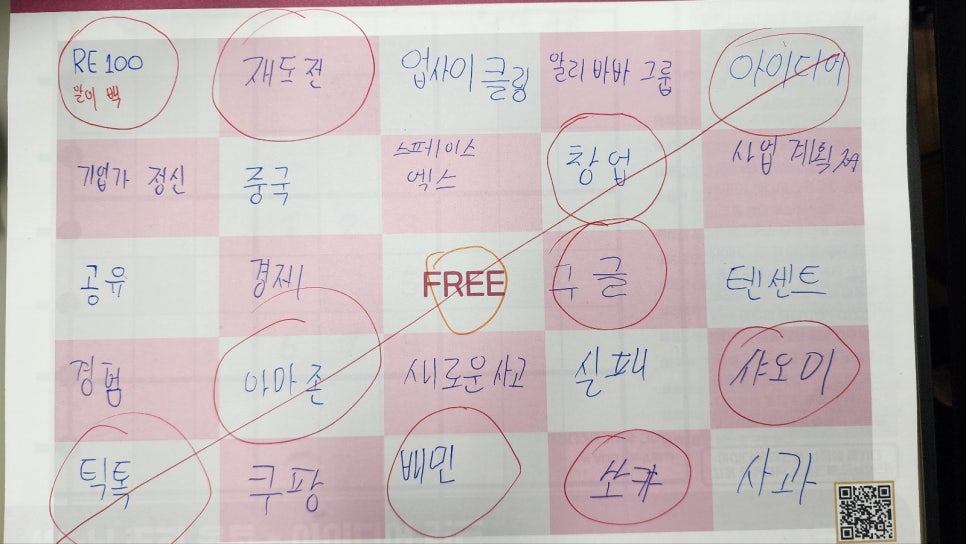 RE100
알이 백
재도전
업사이클링
알리바바 그룹
아이디어
기업가 정신
중국
스페이스
엑스
창업
사업 계획서
공유
경제
FREE
구글
텐센트
경험
아마존
새로운사고
실패
샤오미
틱톡
쿠팡
배민
쏘카
사과